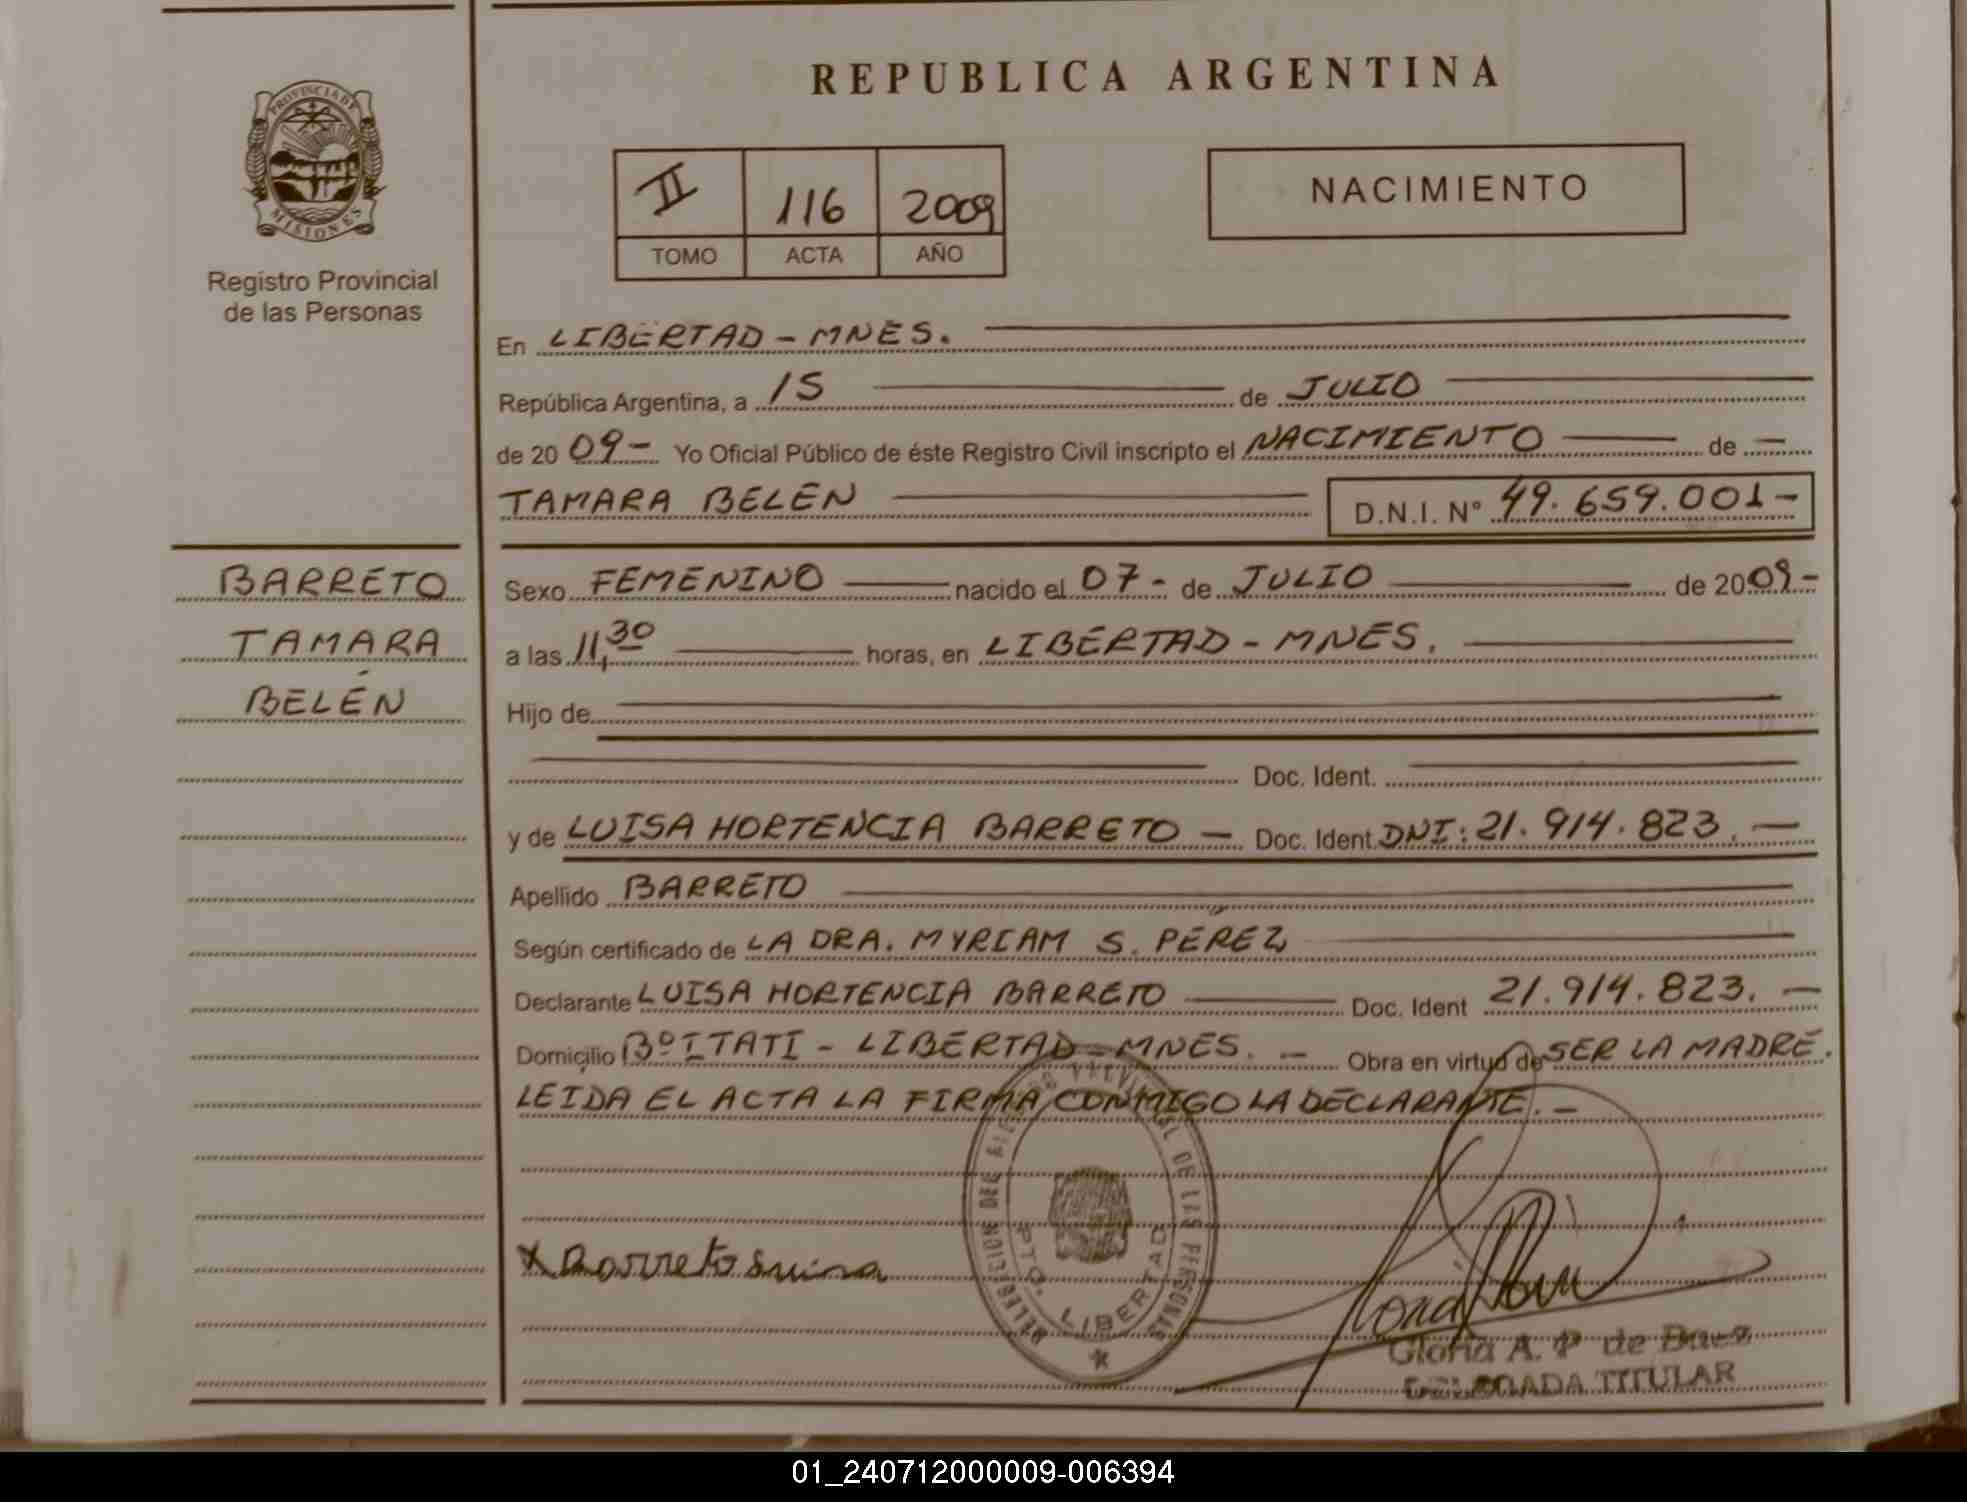 REPUBLICA ARGENTINA
PROVINCIA DE
MISIONES
Registro Provincial
de las Personas
II 116 2009
TOMO ACTA AÑO
NACIMIENTO
En LIBERTAD - MNES.
República Argentina, a 15 de JULIO
de 20 09- Yo Oficial Público de éste Registro Civil inscripto el NACIMIENTO de —
TAMARA BELÉN D.N.I. N° 49.659.001-
BARRETO
TAMARA
BELÉN
Sexo FEMENINO nacido el 07- de JULIO de 2009-
a las 11,30 horas, en LIBERTAD - MNES.
Hijo de
Doc. Ident.
y de LUISA HORTENCIA BARRETO — Doc. Ident. DNI: 21.914.823. —
Apellido BARRETO
Según certificado de LA DRA. MYRIAM S. PÉREZ
Declarante LUISA HORTENCIA BARRETO Doc. Ident 21.914.823. —
Domicilio B° ITATI - LIBERTAD - MNES. — Obra en virtud de SER LA MADRE.
LEIDA EL ACTA LA FIRMA CONMIGO LA DECLARANTE. —
DE LAS PERSONAS
PTO. LIBERTAD
X Barreto Luisa
Gloria A. P de Baez
DELEGADA TITULAR
01_240712000009-006394